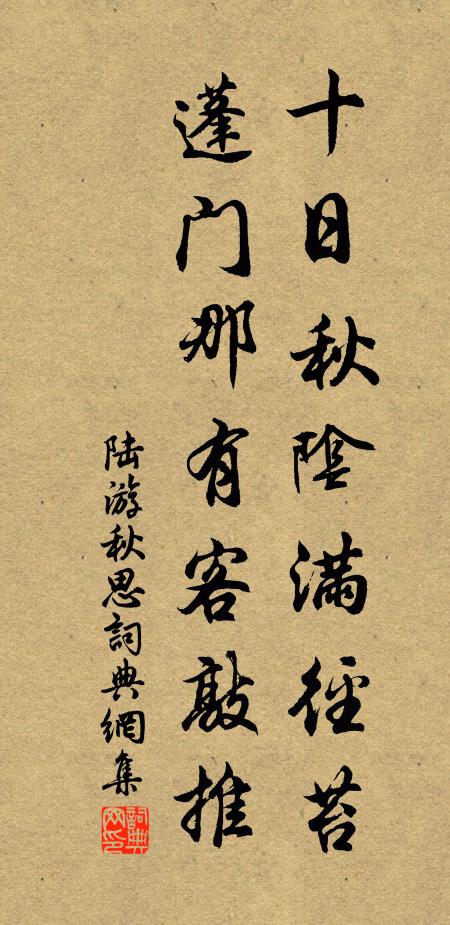 十日秋陰滿徑苔
蓬门那有客敲推
陆游秋思詞典網集
詞典网印